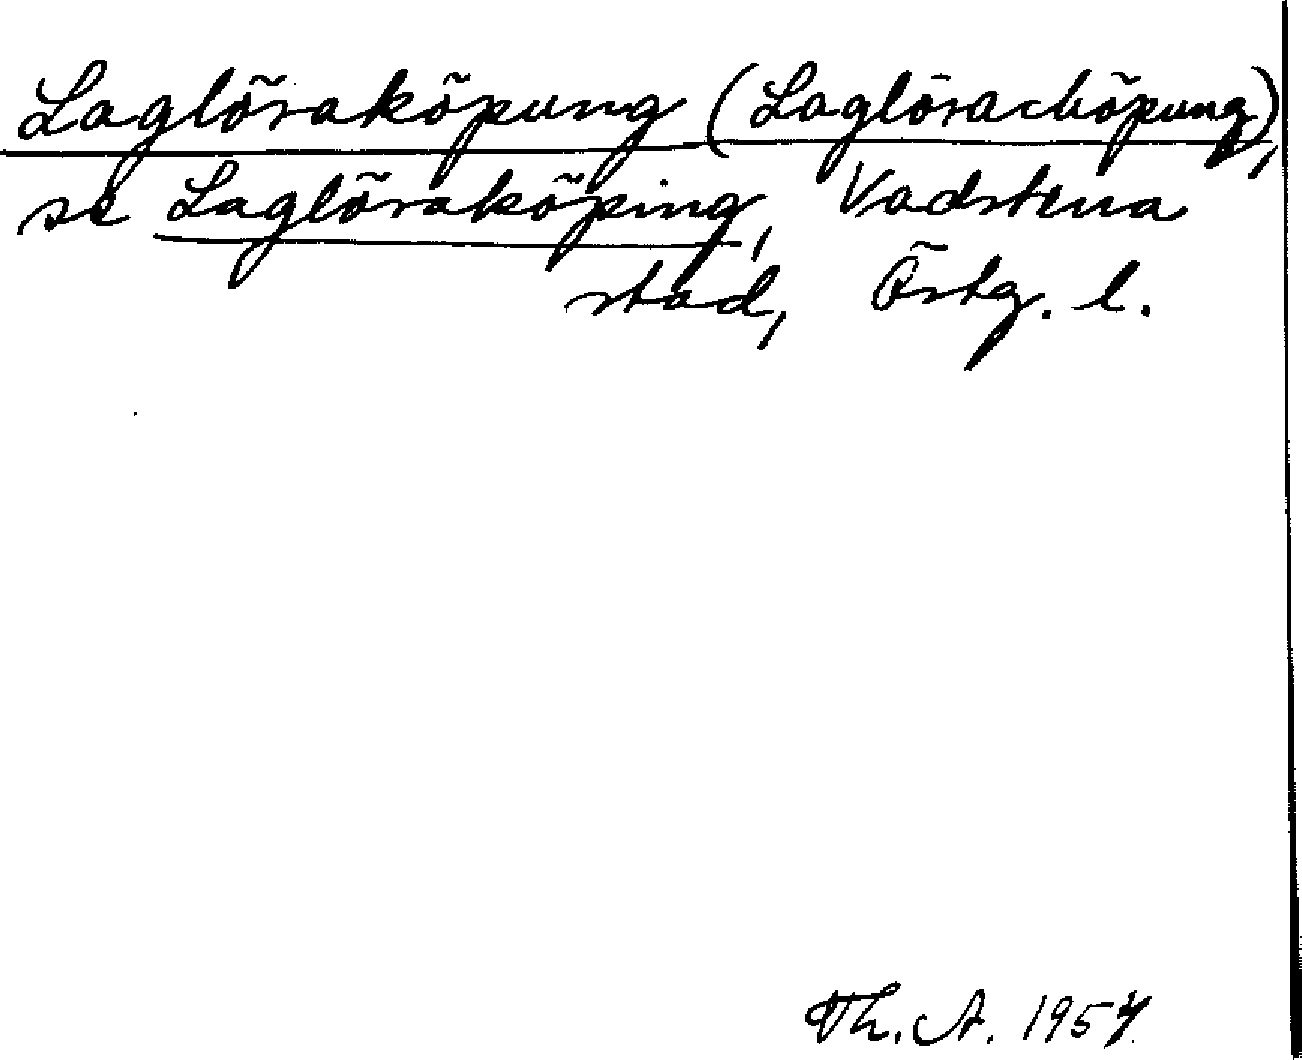 Laglöraköpung (Laglörachöpung),
se Laglöraköping, Vadstena
stad, Östg. l.
Th. A. 1957